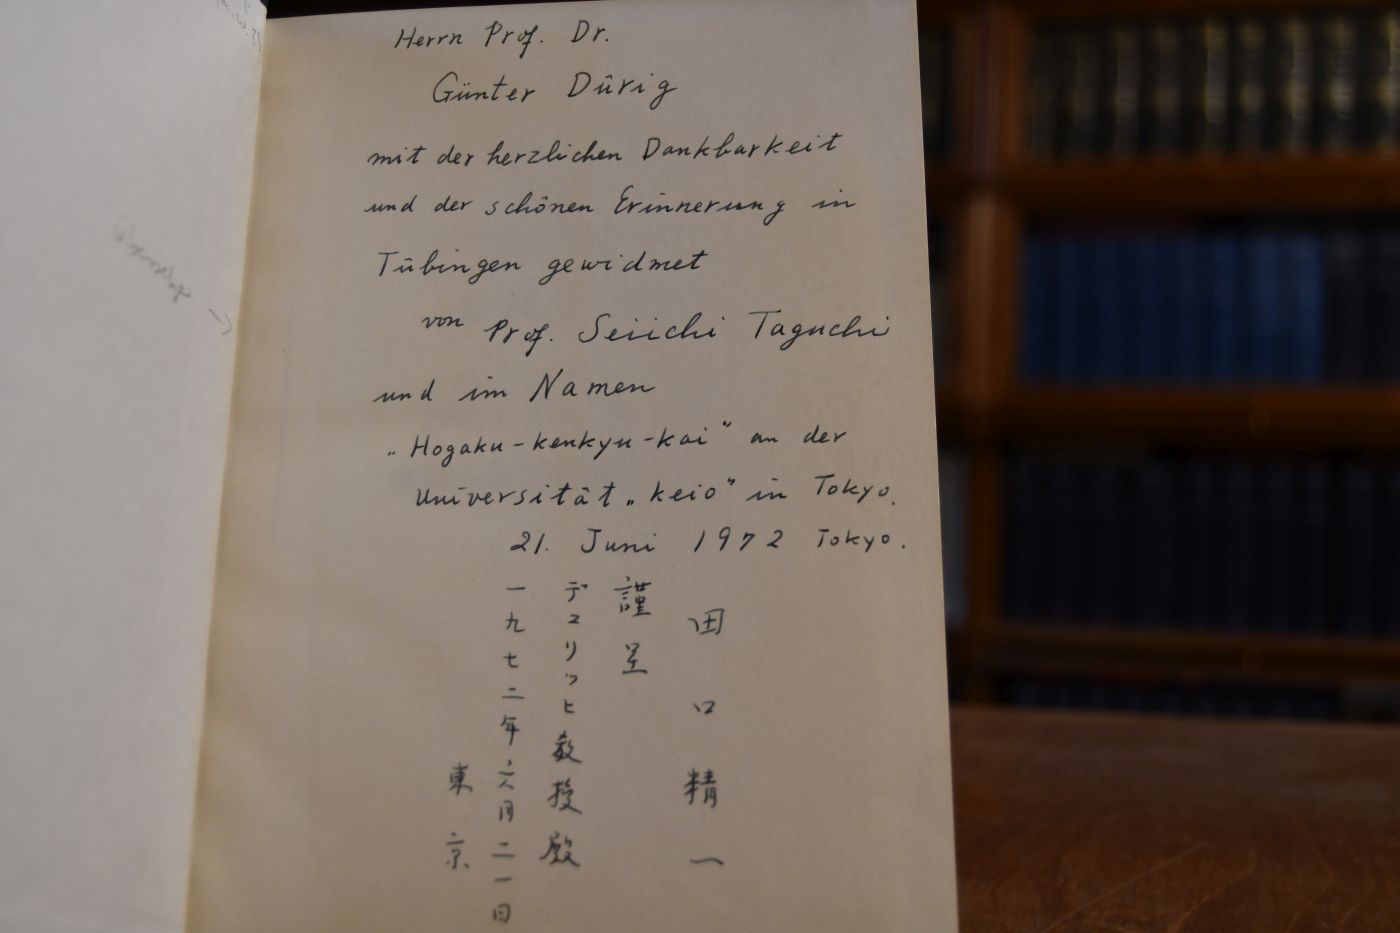 Herrn Prof. Dr.
Günter Dürig
mit der herzlichen Dankbarkeit
und der schönen Erinnerung in
Tübingen gewidmet
von Prof. Seiichi Taguchi
und im Namen
„Hogaku-kenkyu-kai" an der
Universität „Keio" in Tokyo.
21. Juni 1972 Tokyo.
田口精一
謹呈
デュリッヒ教授殿
一九七二年六月二一日
東京